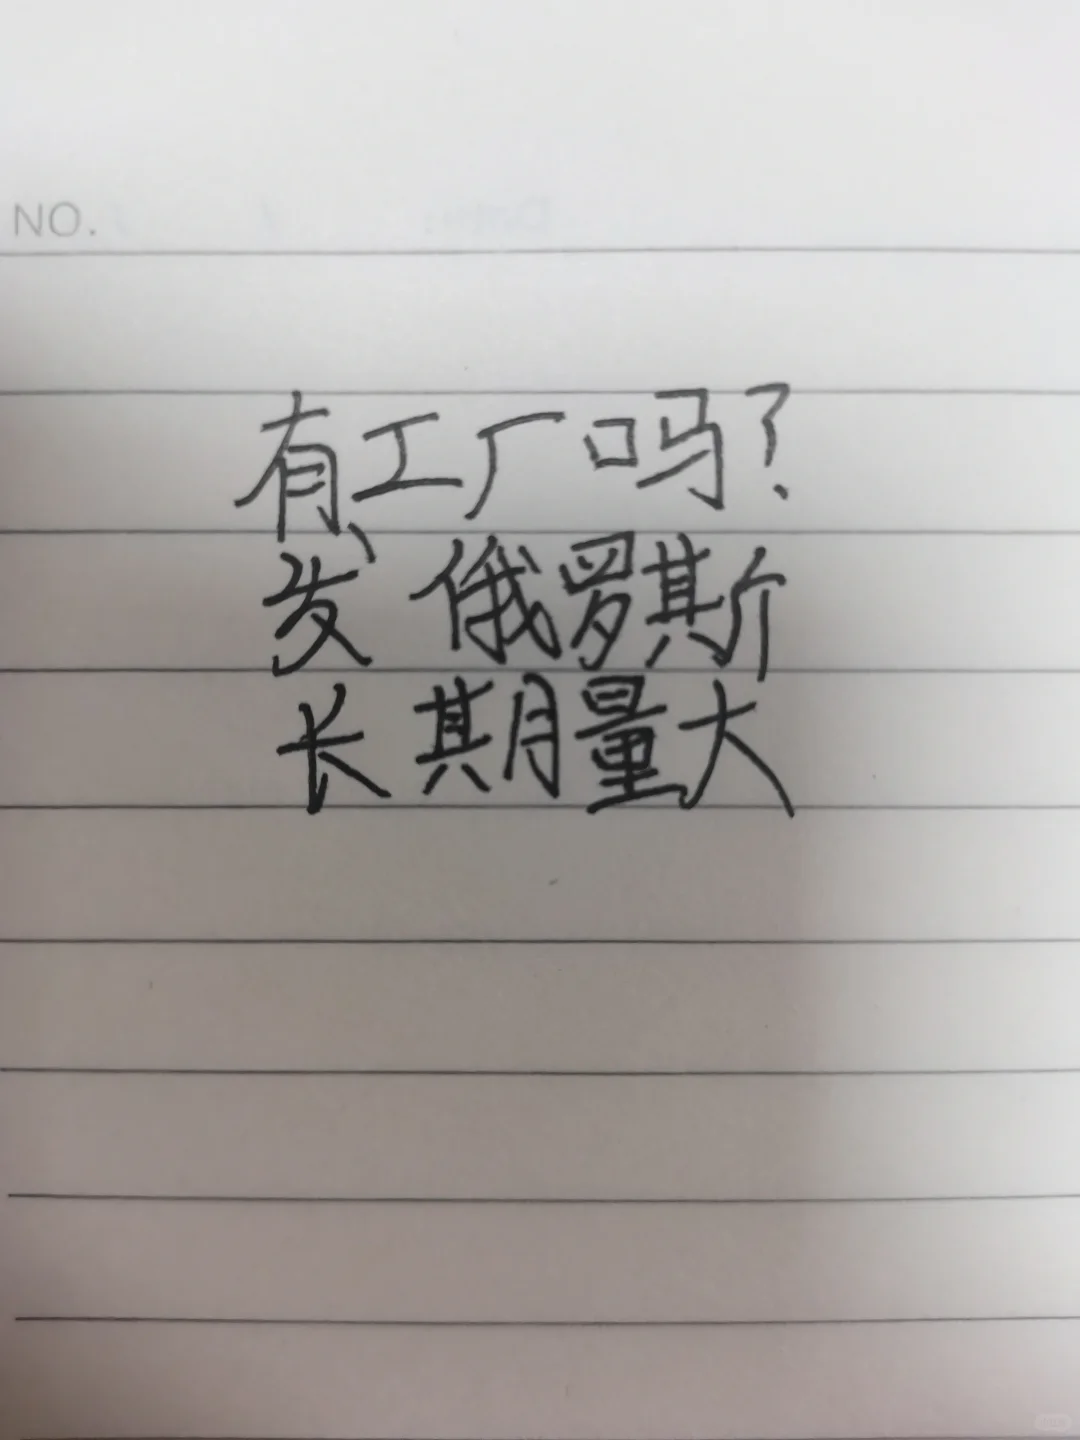 NO.
有工厂吗?
发俄罗斯
长期量大